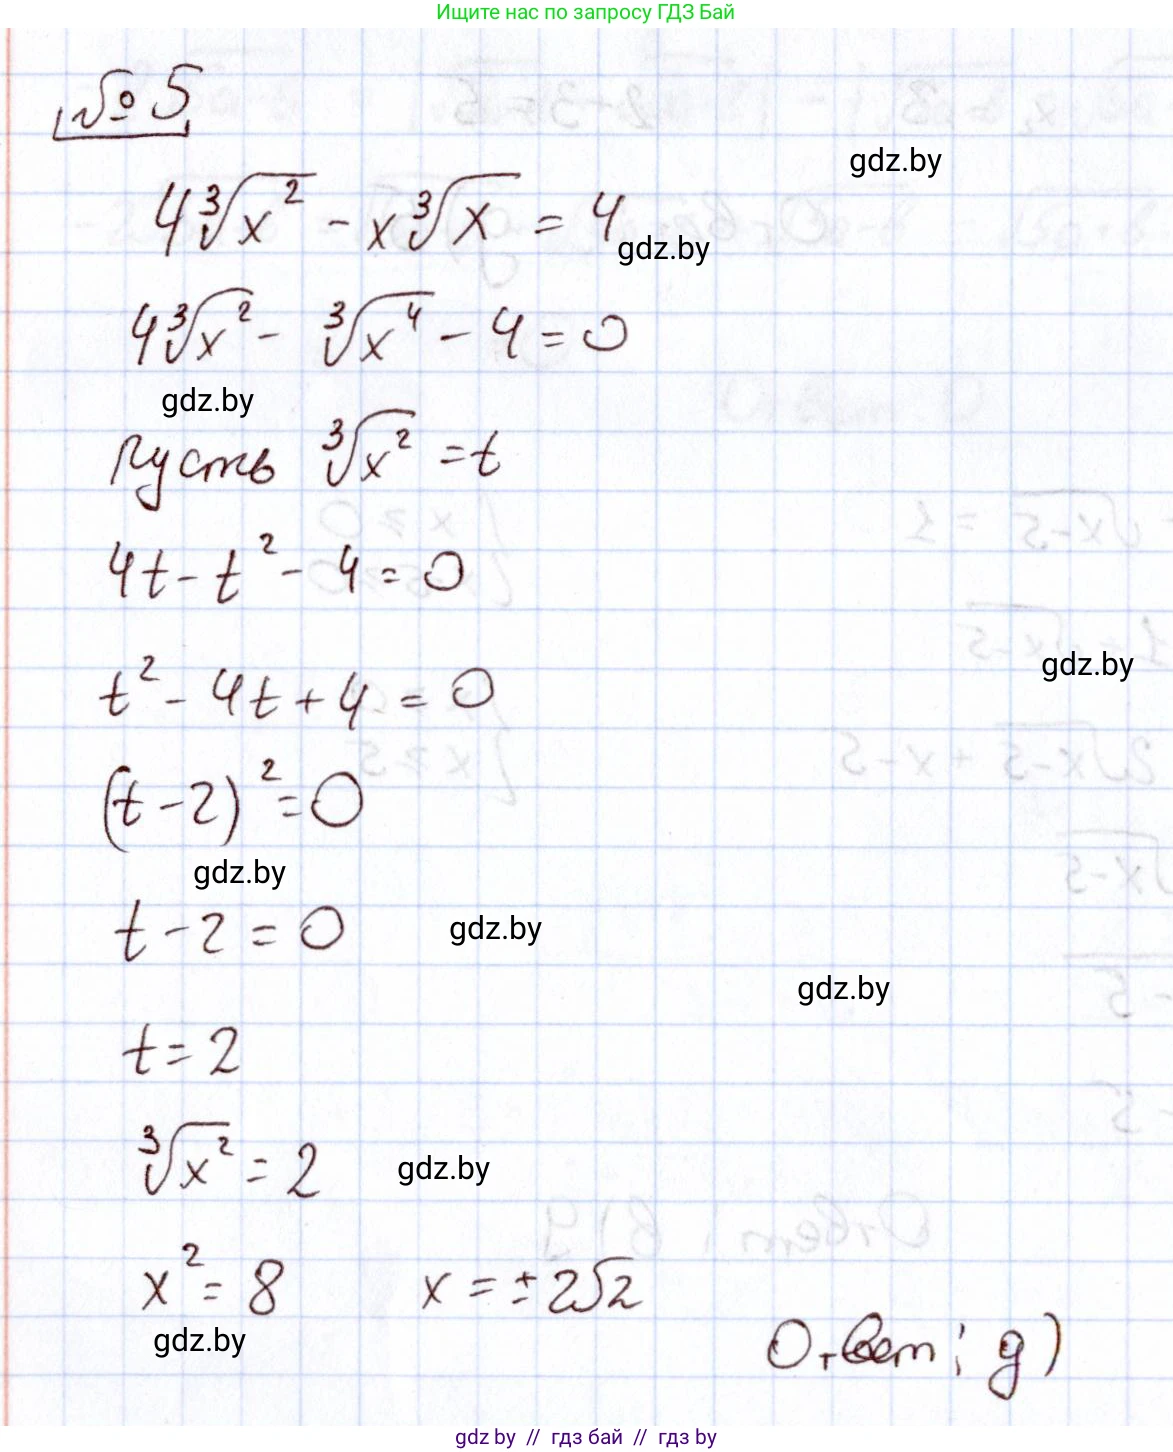 Ищите нас по запросу ГДЗ Бай
№ 5
gdz.by
4∛x² - x∛x = 4
gdz.by
4∛x² - ∛x⁴ - 4 = 0
gdz.by
Пусть ∛x² = t
4t - t² - 4 = 0
t² - 4t + 4 = 0
gdz.by
(t - 2)² = 0
gdz.by
t - 2 = 0
gdz.by
gdz.by
t = 2
∛x² = 2
gdz.by
x² = 8 x = ± 2√2
gdz.by
Ответ: д)
gdz.by // гдз бай // гдз by